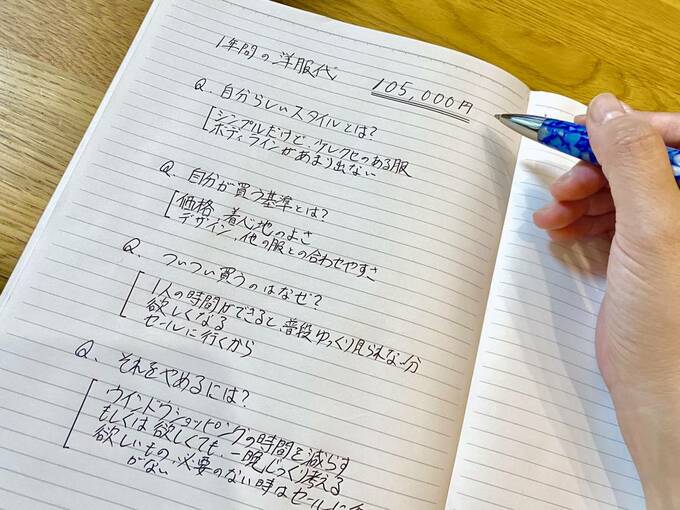 1年間の洋服代 105,000円
Q. 自分らしいスタイルとは?
シンプルだけど、クセのある服
ボディラインがあまり出ない
Q. 自分が買う基準とは?
価格、着心地のよさ
デザイン、他の服との合わせやすさ
Q. ついつい買うのはなぜ?
1人の時間ができると、普段ゆっくり見られない分
欲しくなる
セールに行くから
Q. それをやめるには?
ウインドウショッピングの時間を減らす
もしくは欲しくても、一晩じっくり考える
欲しいもの、必要のない時はセールに
かない